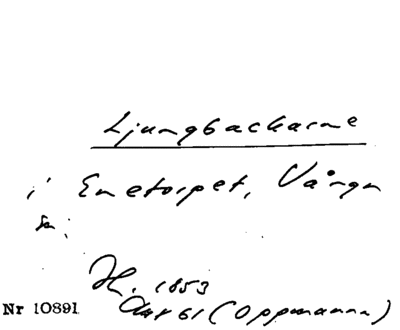 Ljungbackarne
i Enetorpet, Vånga
sn.
H. 1853
Akt 61 (Oppmanna)
Nr 10891